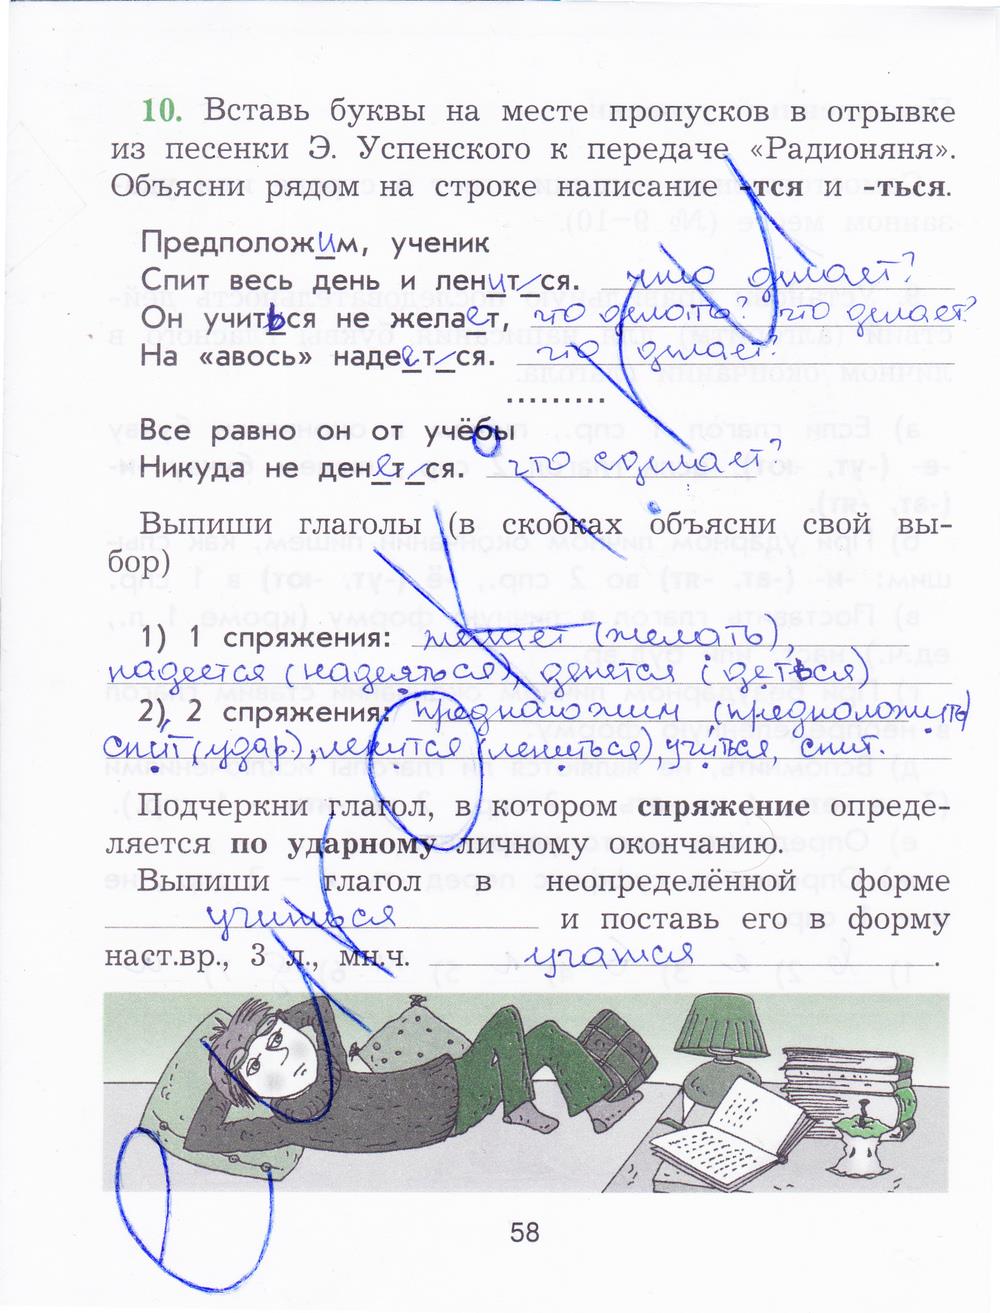 10. Вставь буквы на месте пропусков в отрывке
из песенки Э. Успенского к передаче «Радионяня».
Объясни рядом на строке написание -тся и -ться.
Предположим, ученик
Спит весь день и ленится. что делает?
Он учиться не желает, что делать? что делает?
На «авось» надеется. что делает?
.........
Все равно он от учёбы
Никуда не денется. что сделает?
Выпиши глаголы (в скобках объясни свой вы-
бор)
1) 1 спряжения: желает (желать),
надеется (надеяться), денятся (деться)
2) 2 спряжения: предположим (предположить)
спит (удар), ленится (лениться), учиться, спит.
Подчеркни глагол, в котором спряжение опреде-
ляется по ударному личному окончанию.
Выпиши глагол в неопределённой форме
учиться и поставь его в форму
наст.вр., 3 л., мн.ч. учатся.
58